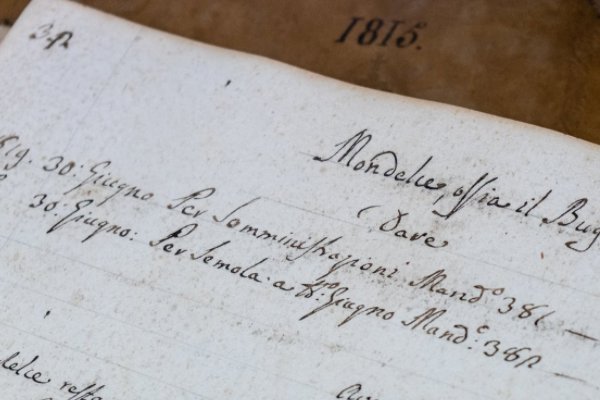 1815.
Mondelce, ossia il Bug
Dare
819. 30: Giugno Per Somministrazioni Mand.º 381 —
30: Giugno: Per Semola a tt.º Giugno Mand.º: 382 —
delce resta